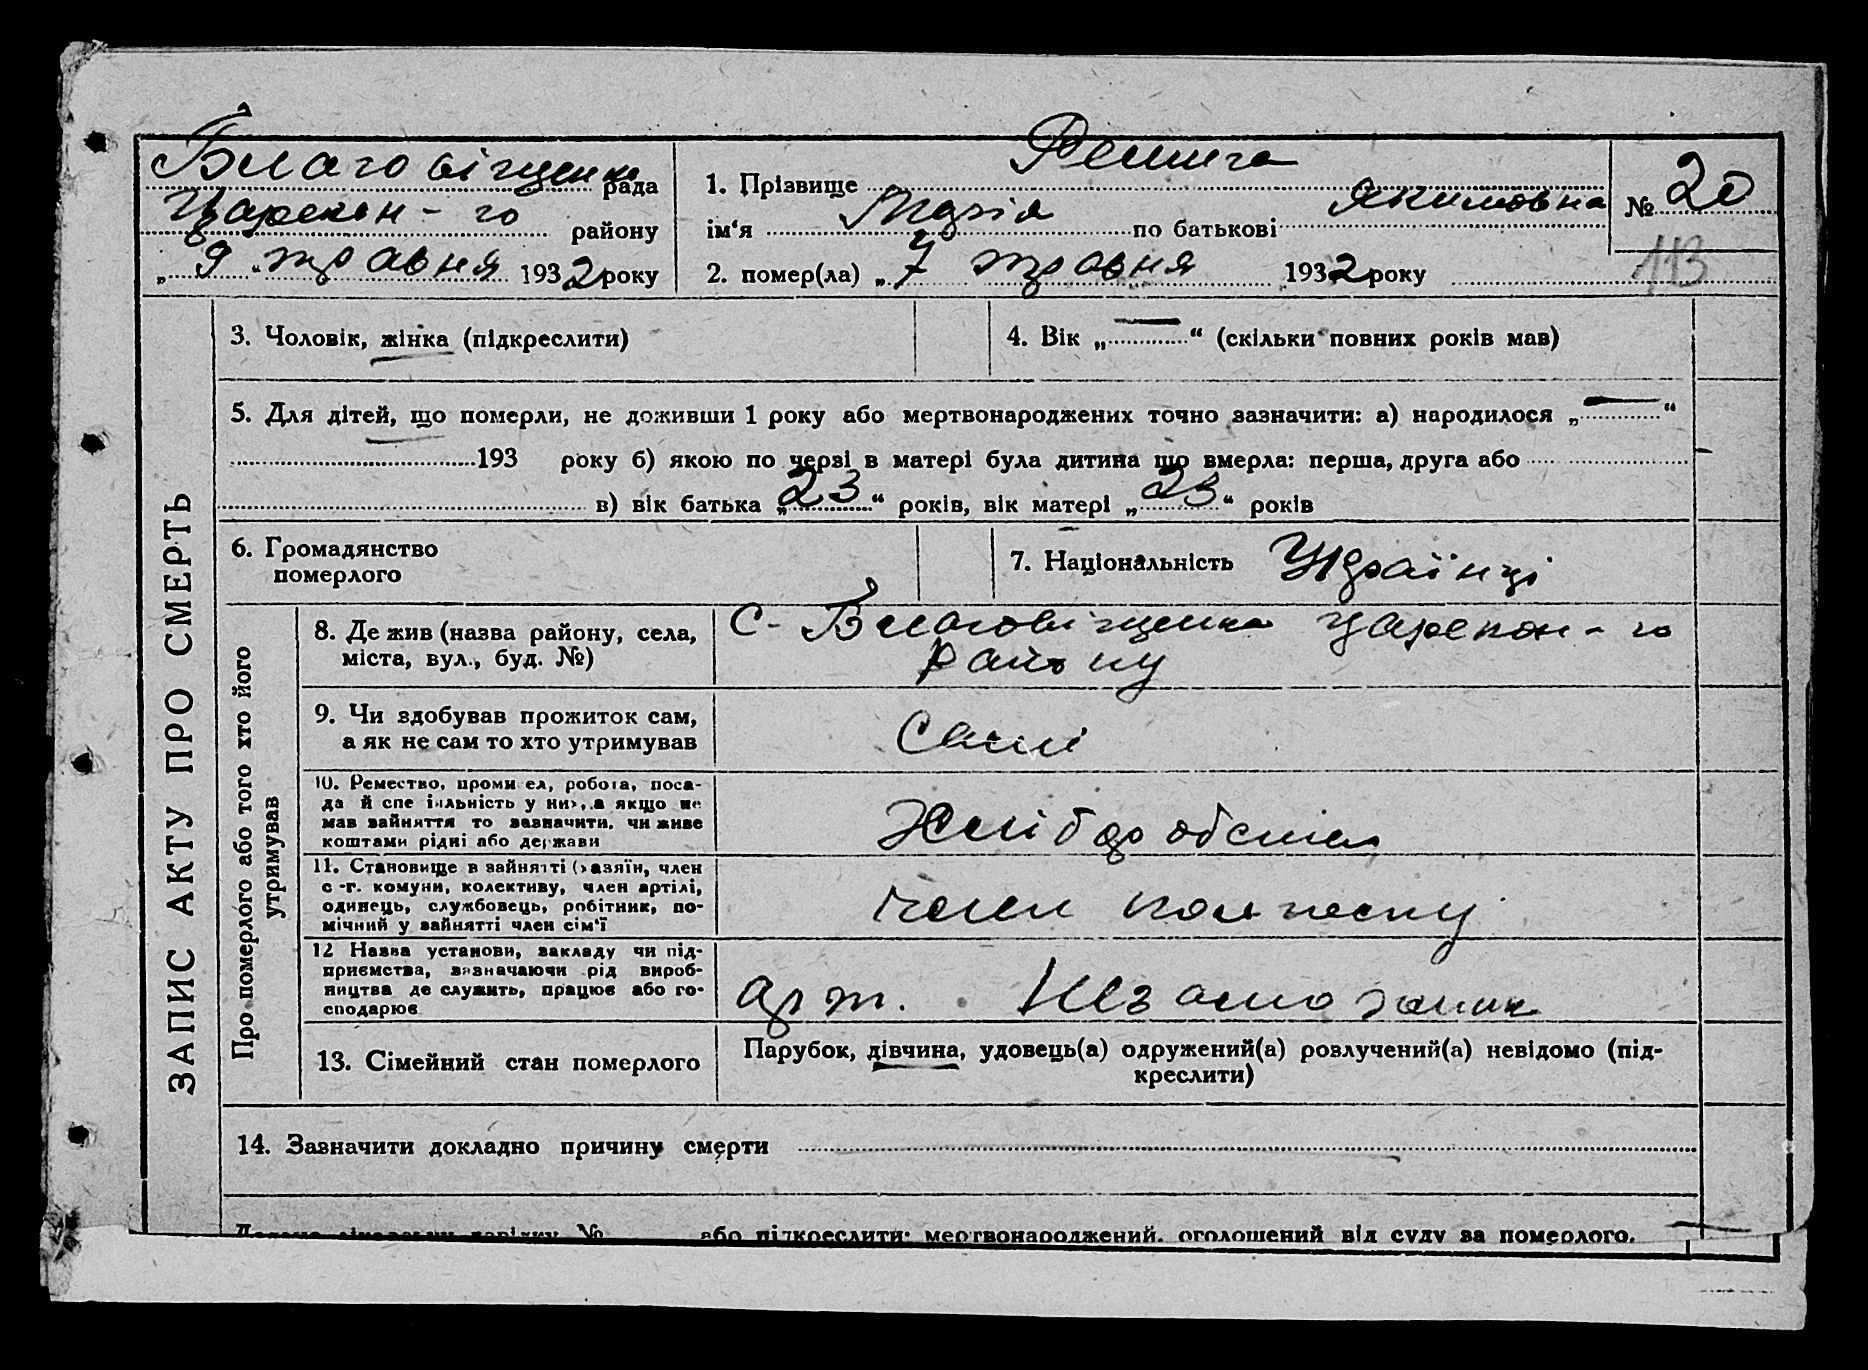 Благовіщенс рада
Царекон-го району
„ 9 “ травня 1932 року
1. Прізвище
ім‘я Марія по батькові Якимовна
2. помер(ла) „ 7 травня 1932 року
№ 20
113
ЗАПИС АКТУ ПРО СМЕРТЬ
3. Чоловік, жінка (підкреслити)
4. Вік „ — “ (скільки повних років мав)
5. Для дітей, що померли, не доживши 1 року або мертвонароджених точно зазначити: а) народилося „ — “
— 193 року б) якою по черзі в матері була дитина що вмерла: перша, друга або
в) вік батька „ 23 “ років, вік матері „ 23 “ років
6. Громадянство
померлого
7. Національність Українці
Про померлого або того хто його
утримував
8. Де жив (назва району, села,
міста, вул., буд. №)
С-Благовіщенка Царекон-го
району
9. Чи здобував прожиток сам,
а як не сам то хто утримував
Самі
10. Ремество, промисел, робота, поса-
да й спеціяльність у них, а якщо не
мав зайняття то зазначити, чи живе
коштами рідні або держави
Хліборобство
11. Становище в зайнятті (хазяїн, член
с-г. комуни, колективу, член артілі,
одинець, службовець, робітник, по-
мічний у зайнятті член сім‘ї
член колгоспу
12 Назва установи, закладу чи під-
приємства, зазначаючи рід вироб-
ництва де служить, працює або го-
сподарює
арт. Незаможник
13. Сімейний стан померлого
Парубок, дівчина, удовець(а) одружений(а) розлучений(а) невідомо (під-
креслити)
14. Зазначити докладно причину смерти
№ або підкреслити: мертвонароджений, оголошений від суду за померлого.